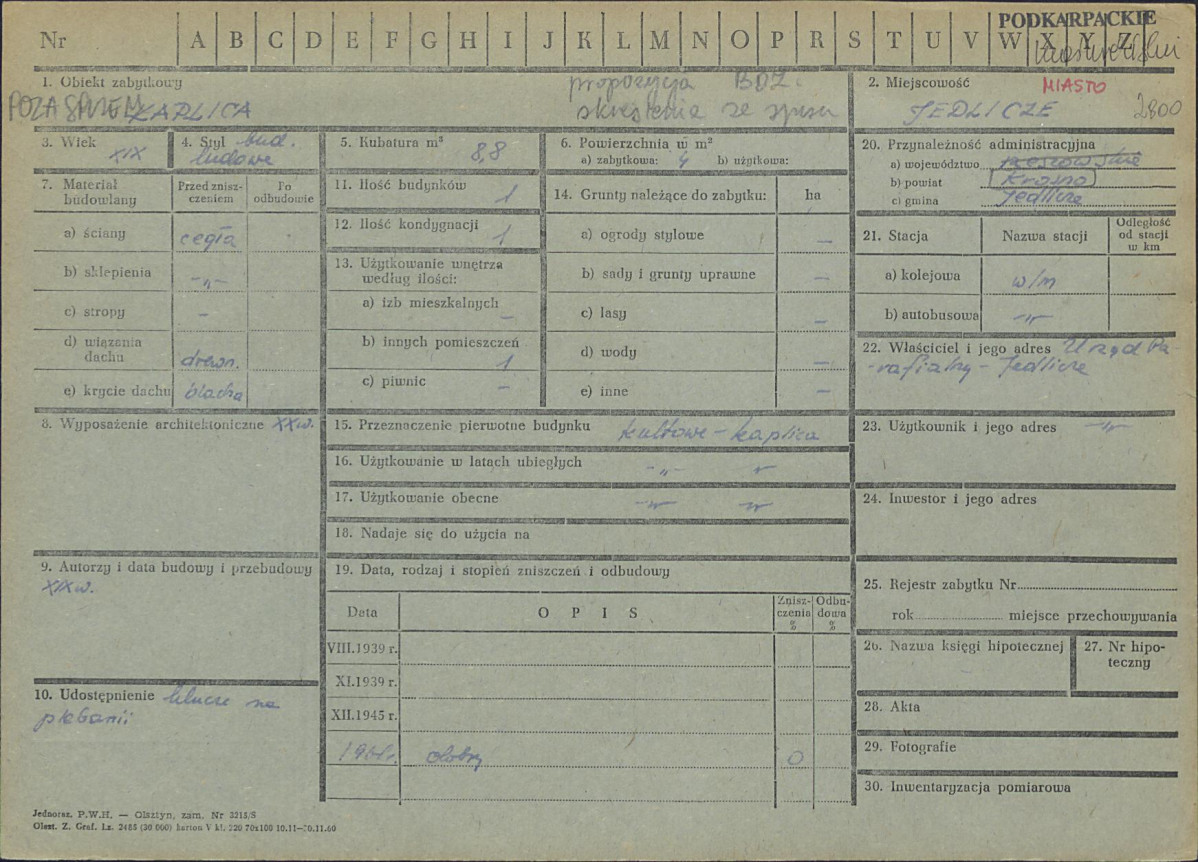 PODKARPACKIE
Nr A B C D E F G H I J K L M N O P R S T U V W X Y Z
1. Obiekt zabytkowy
POZA SPISEM KAPLICA
propozycja BDZ.
skreślenia ze spisu
2. Miejscowość MIASTO
JEDLICZE 2800
3. Wiek
XIX
4. Styl bud.
ludowe
5. Kubatura m³
8,8
6. Powierzchnia w m²
a) zabytkowa: 4 b) użytkowa:
20. Przynależność administracyjna
a) województwo rzeszowskie
b) powiat Krosno
c) gmina Jedlicze
7. Materiał budowlany
Przed zniszczeniem
Po odbudowie
a) ściany cegła
b) sklepienia -„-
c) stropy -
d) wiązania dachu drewn.
e) krycie dachu blacha
11. Ilość budynków
1
12. Ilość kondygnacji
1
13. Użytkowanie wnętrza
według ilości:
a) izb mieszkalnych
-
b) innych pomieszczeń
1
c) piwnic -
14. Grunty należące do zabytku: ha
a) ogrody stylowe -
b) sady i grunty uprawne -
c) lasy -
d) wody -
e) inne -
21. Stacja
Nazwa stacji
Odległość
od stacji
w km
a) kolejowa w/m
b) autobusowa -„-
22. Właściciel i jego adres Urząd Pa-
-rafialny - Jedlicze
8. Wyposażenie architektoniczne XXw.
15. Przeznaczenie pierwotne budynku kultowe - kaplica
16. Użytkowanie w latach ubiegłych -„- „
17. Użytkowanie obecne -„- „
18. Nadaje się do użycia na
23. Użytkownik i jego adres -„-
24. Inwestor i jego adres
9. Autorzy i data budowy i przebudowy
XIXw.
19. Data, rodzaj i stopień zniszczeń i odbudowy
Data
O P I S
Zniszczenia %
Odbudowa %
VIII.1939 r.
XI.1939 r.
XII.1945 r.
dobry 0
25. Rejestr zabytku Nr
rok miejsce przechowywania
26. Nazwa księgi hipotecznej
27. Nr hipoteczny
10. Udostępnienie klucze na
plebanii
28. Akta
29. Fotografie
30. Inwentaryzacja pomiarowa
Jednoraz. P.W.H. — Olsztyn, zam. Nr 3213/S
Olszt. Z. Graf. Lz. 2485 (30 000) karton V kl. 220 70x100 10.11—30.11.60